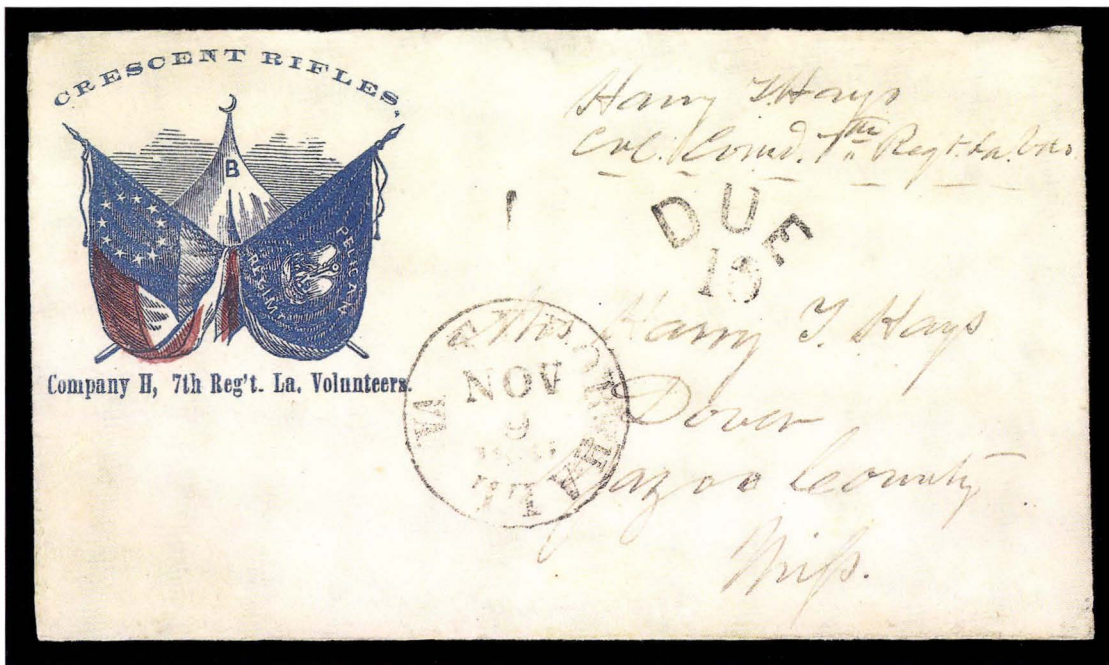 CRESCENT RIFLES,
B
PELICAN
REGIM
Company H, 7th Reg't. La. Volunteers.
Harry T. Hays
Col. Comd. 7th Regt. La. Vols.
DUE
10
Mrs Harry T. Hays
Dover
Yazoo County
Miss.
NOV
9
VA